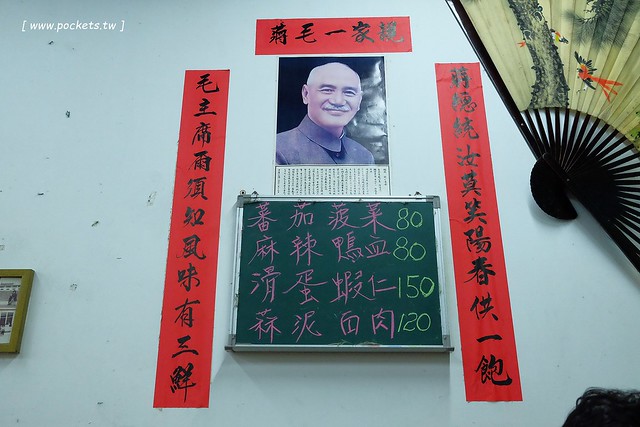 [ www.pockets.tw ]
蔣毛一家說
蔣總統汝莫笑陽春供一飽
毛主席雨須知風味有三鮮
蕃茄菠菜80
麻辣鴨血80
滑蛋蝦仁150
蒜泥白肉120